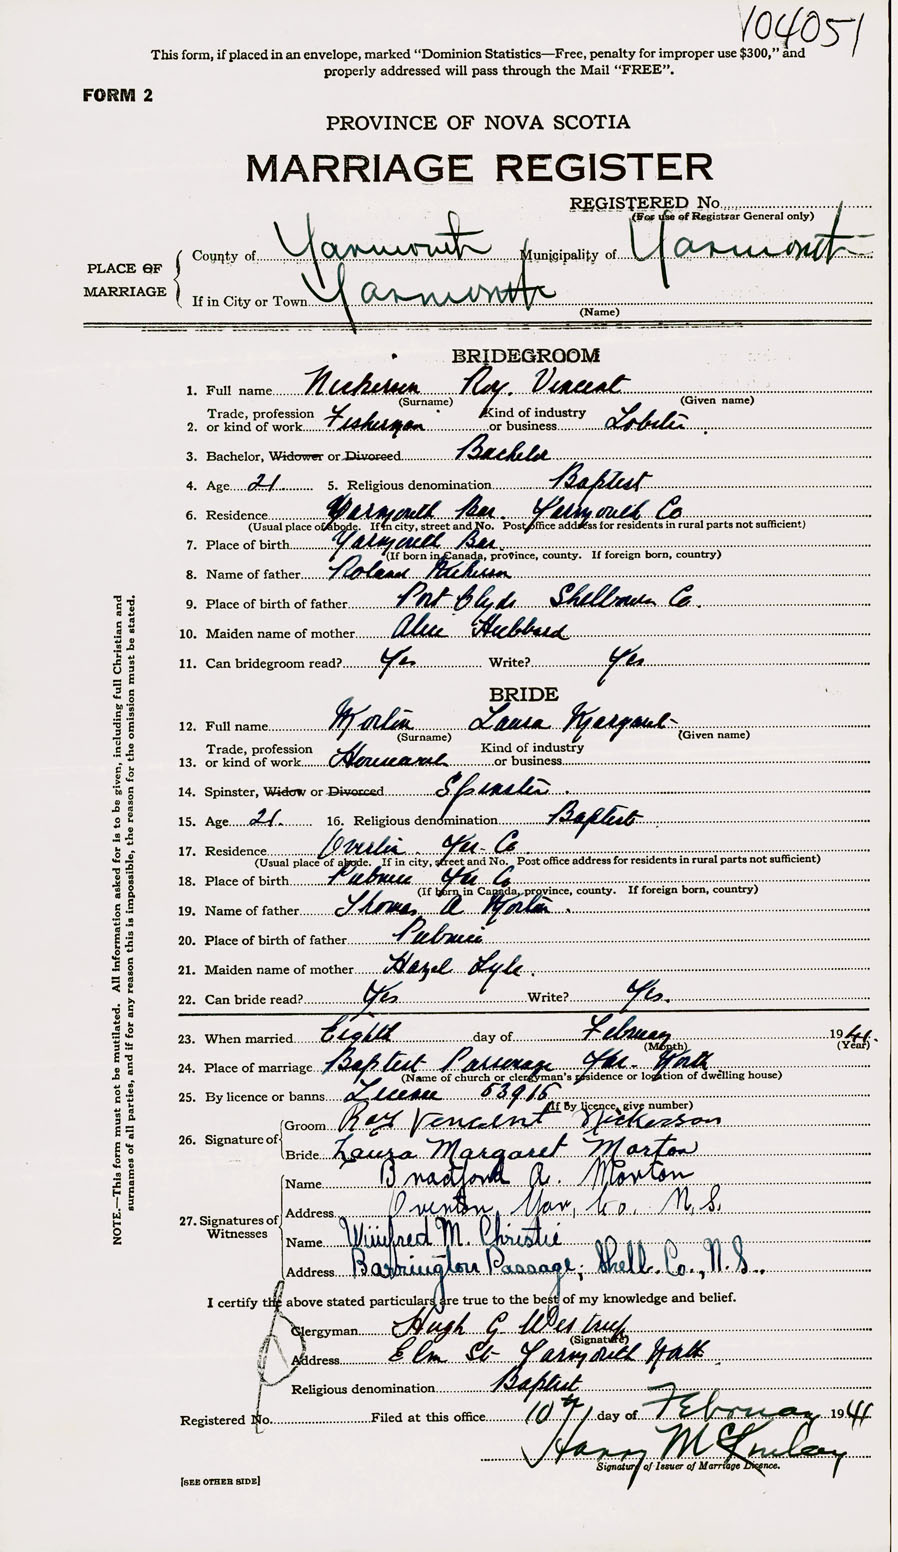 104051
This form, if placed in an envelope, marked “Dominion Statistics—Free, penalty for improper use $300,” and
properly addressed will pass through the Mail “FREE”.
FORM 2
PROVINCE OF NOVA SCOTIA
MARRIAGE REGISTER
REGISTERED No.
(For use of Registrar General only)
PLACE OF MARRIAGE
County of Yarmouth Municipality of Yarmouth
If in City or Town Yarmouth
(Name)
BRIDEGROOM
1. Full name Nickerson Roy Vincent
(Surname) (Given name)
2. Trade, profession or kind of work Fisherman Kind of industry or business Lobster
3. Bachelor, Widower or Divorced Bachelor
4. Age 21 5. Religious denomination Baptist
6. Residence Yarmouth Bar Yarmouth Co
(Usual place of abode. If in city, street and No. Post office address for residents in rural parts not sufficient)
7. Place of birth Yarmouth Bar
(If born in Canada, province, county. If foreign born, country)
8. Name of father Roland Nickerson
9. Place of birth of father Port Clyde Shelburne Co.
10. Maiden name of mother Alice Hubbard
11. Can bridegroom read? Yes Write? Yes
BRIDE
12. Full name Morton Laura Margaret
(Surname) (Given name)
13. Trade, profession or kind of work Kind of industry or business
14. Spinster, Widow or Divorced Spinster
15. Age 21. 16. Religious denomination Baptist
17. Residence Overton Yar. Co
(Usual place of abode. If in city, street and No. Post office address for residents in rural parts not sufficient)
18. Place of birth Pubnico Yar Co
(If born in Canada, province, county. If foreign born, country)
19. Name of father Thomas A Morton.
20. Place of birth of father Pubnico
21. Maiden name of mother Hazel Lyle.
22. Can bride read? Yes Write? Yes.
23. When married Eighth day of February 1941.
(Month) (Year)
24. Place of marriage Baptist Parsonage Yar. North
(Name of church or clergyman’s residence or location of dwelling house)
25. By licence or banns License 53915
(If by licence, give number)
26. Signature of
Groom Roy Vincent Nickerson
Bride Laura Margaret Morton
27. Signatures of Witnesses
Name Bradford A. Morton
Address Overton, Yar, Co. N.S.
Name Winifred M. Christie
Address Barrington Passage, Shell. Co., N.S.
I certify the above stated particulars are true to the best of my knowledge and belief.
Clergyman Hugh G Westrup
(Signature)
Address Elm St Yarmouth North
Religious denomination Baptist
Registered No. Filed at this office 10th day of February 1941
Harry McKinlay
Signature of Issuer of Marriage Licence.
[SEE OTHER SIDE]
NOTE.—This form must not be mutilated. All information asked for is to be given, including full Christian and
surnames of all parties, and if for any reason this is impossible, the reason for the omission must be stated.